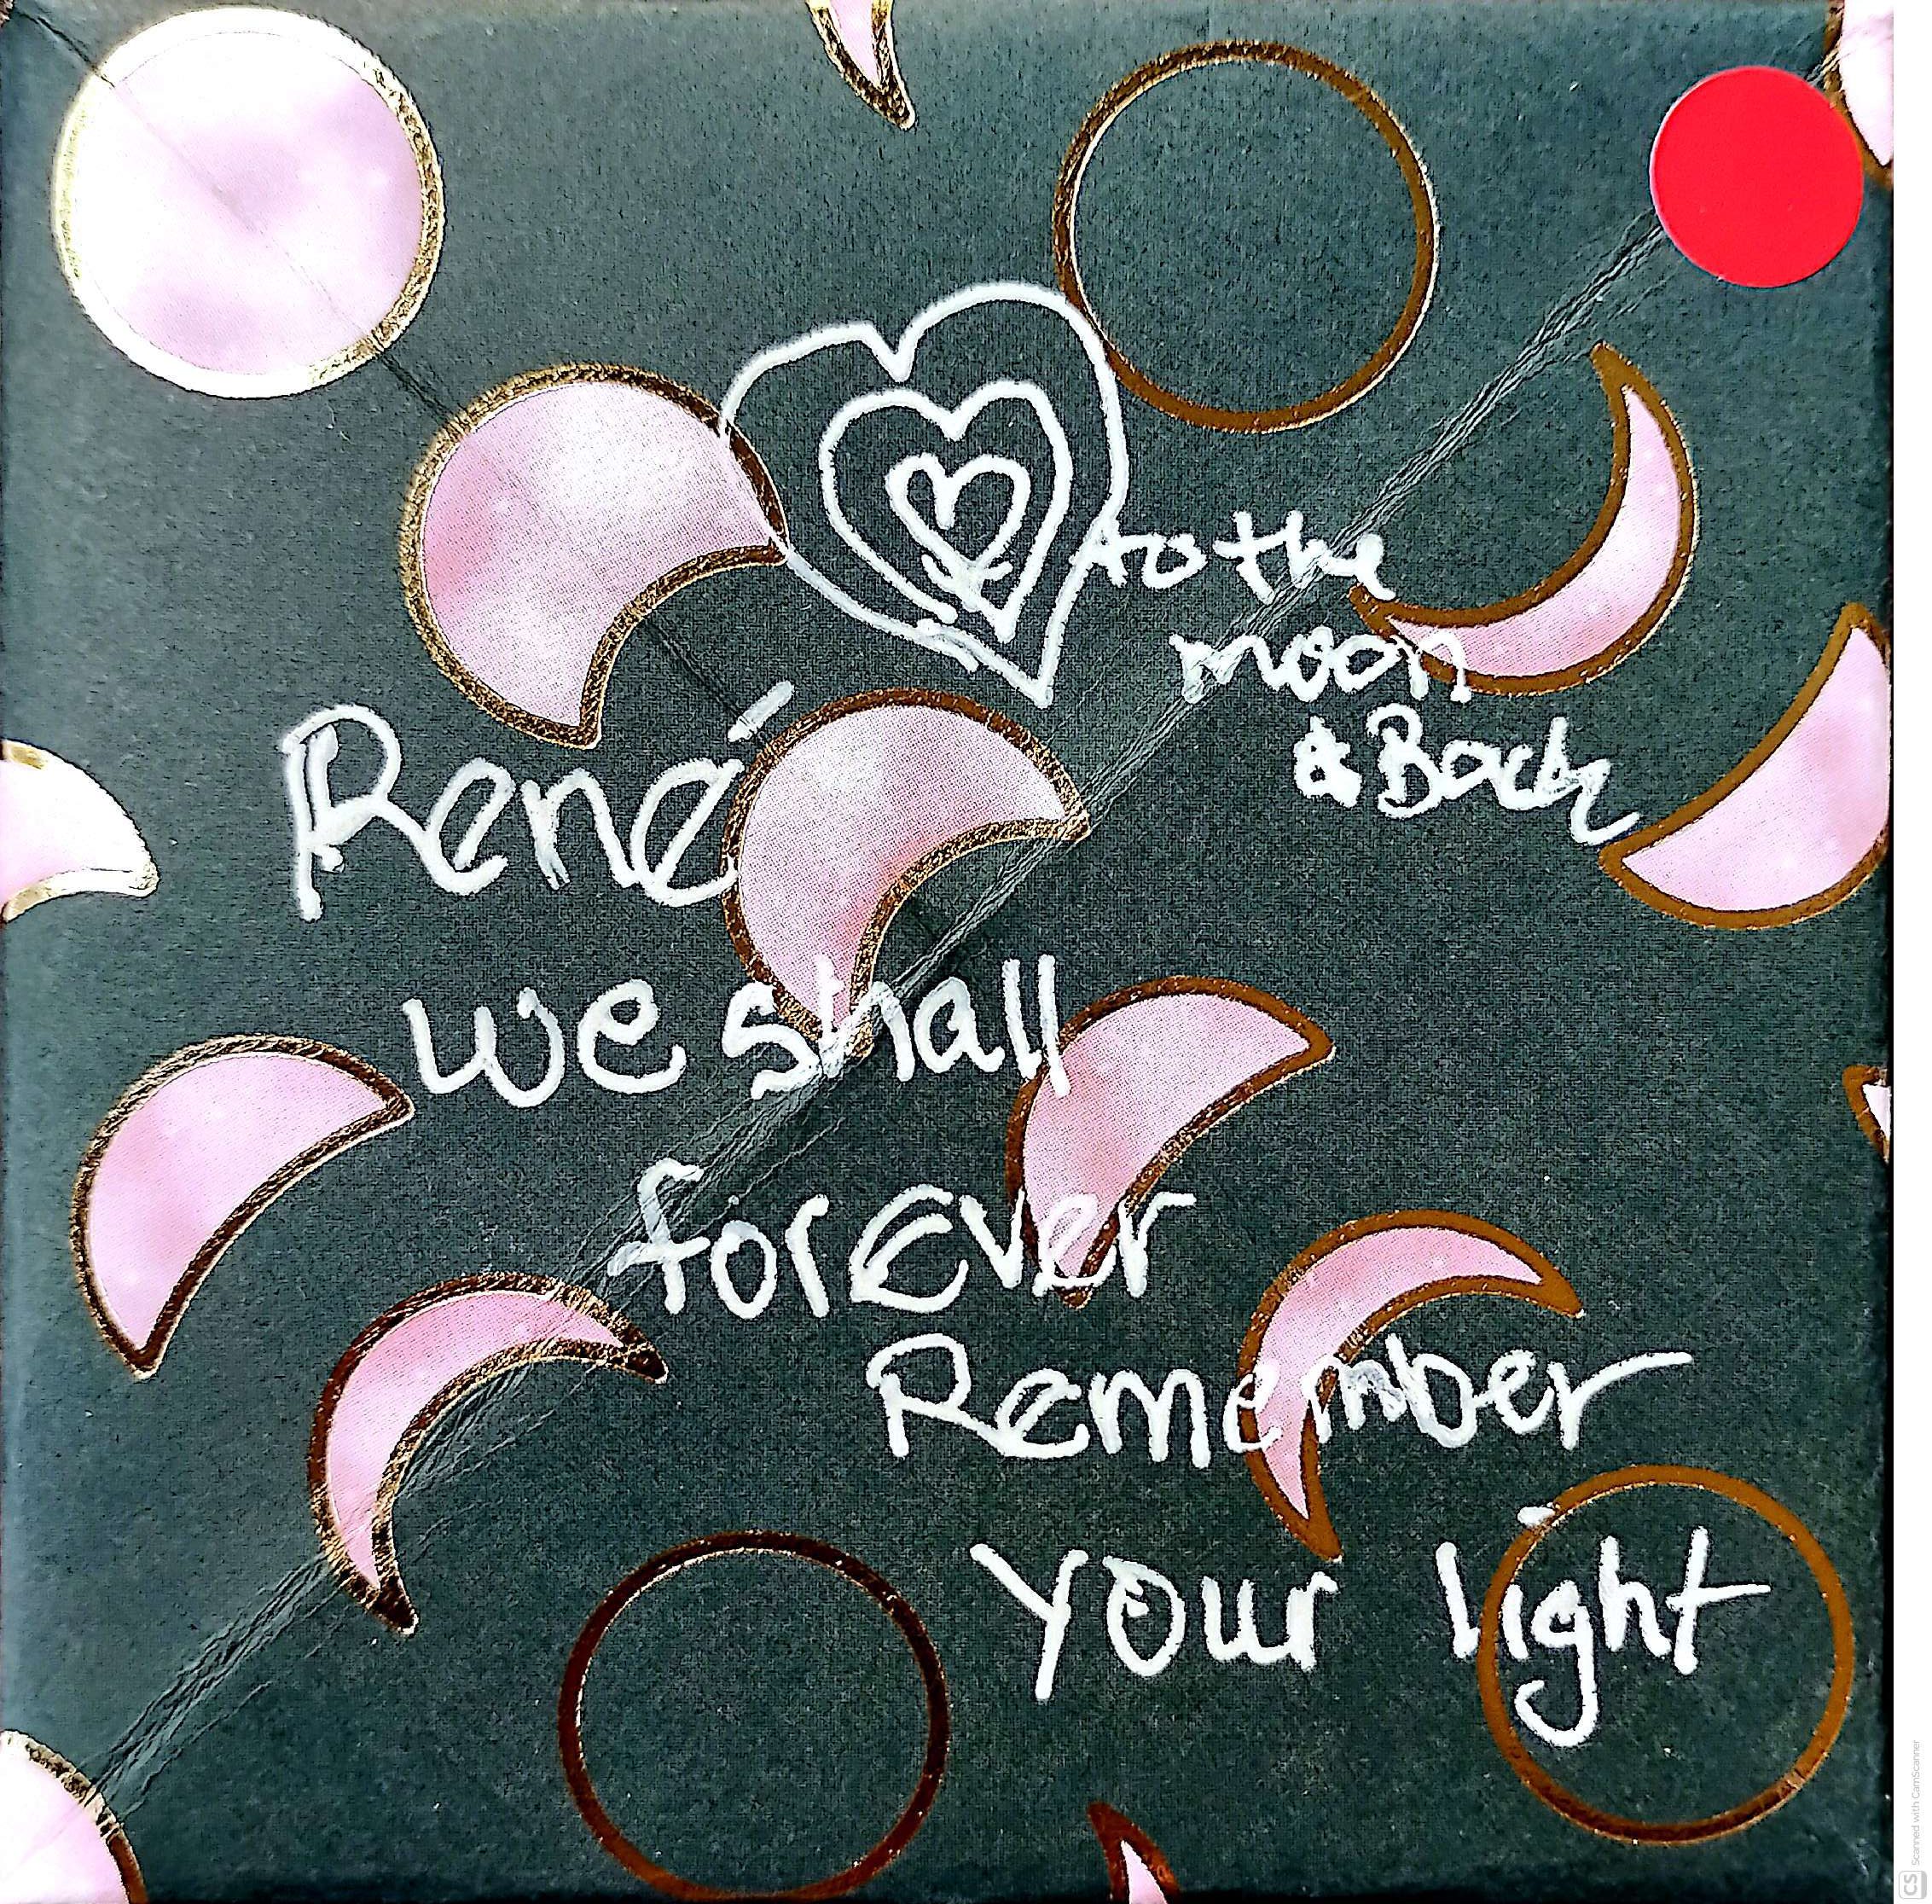 to the
moon
& Back
René
we shall
forEver
Remember
your light
CS Scanned with CamScanner